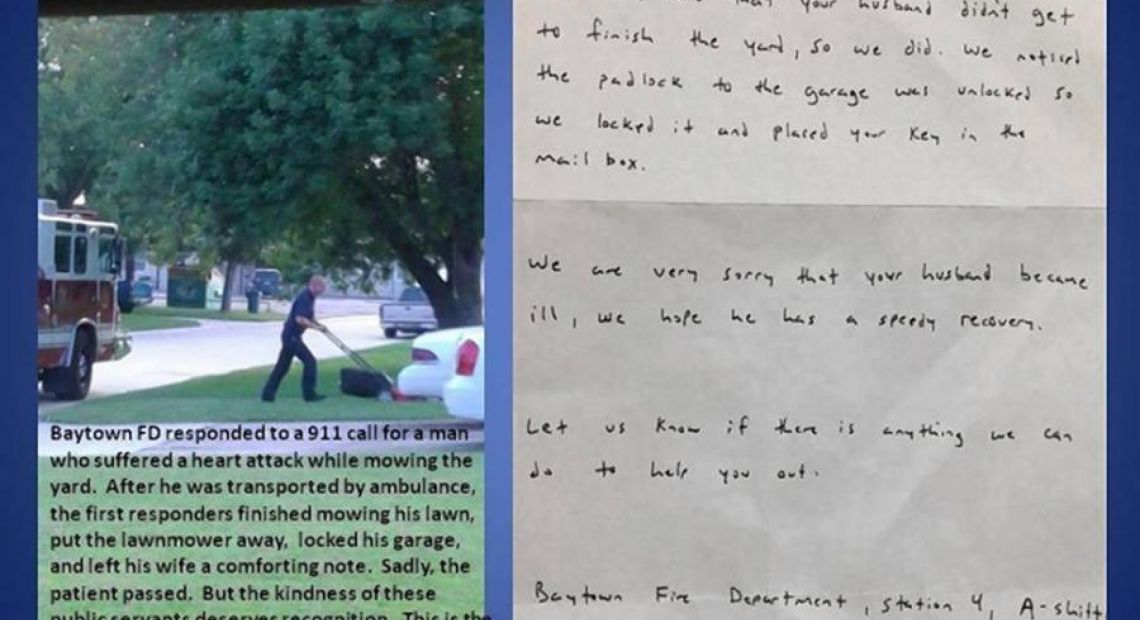 Baytown FD responded to a 911 call for a man
who suffered a heart attack while mowing the
yard. After he was transported by ambulance,
the first responders finished mowing his lawn,
put the lawnmower away, locked his garage,
and left his wife a comforting note. Sadly, the
patient passed. But the kindness of these
public servants deserves recognition. This is the
your husband didn't get
to finish the yard, so we did. We noticed
the padlock to the garage was unlocked so
we locked it and placed your key in the
mail box.
We are very sorry that your husband became
ill, we hope he has a speedy recovery.
Let us know if there is anything we can
do to help you out.
Baytown Fire Department, Station 4, A-shift